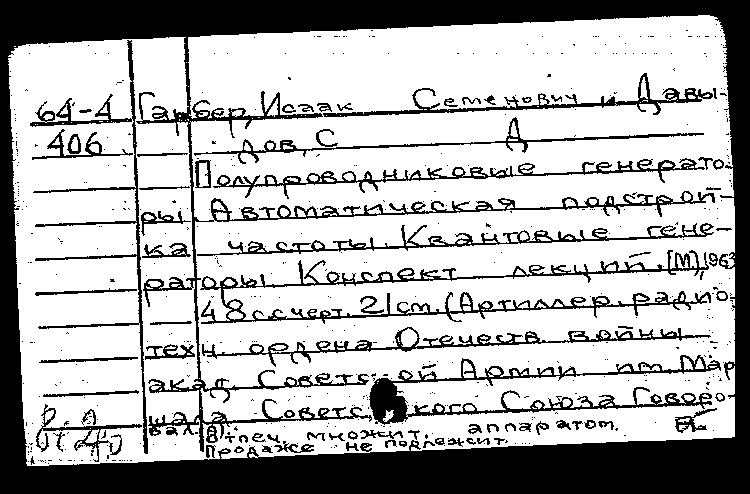 64-4 Гарбер, Исаак Семенович и Давы-
406 дов, С Д
Полупроводниковые генерато-
ры. Автоматическая подстрой-
ка частоты. Квантовые гене-
раторы. Конспект лекций. [М], 1963
48 с.с черт. 21 см. (Артиллер. радио-
техн. ордена Отечеств. войны
акад. Советской Армии им. Мар
шала Советского Союза Говоро-
ва Л.А.)
Отпеч. множит. аппаратом.
Продаже не подлежит.